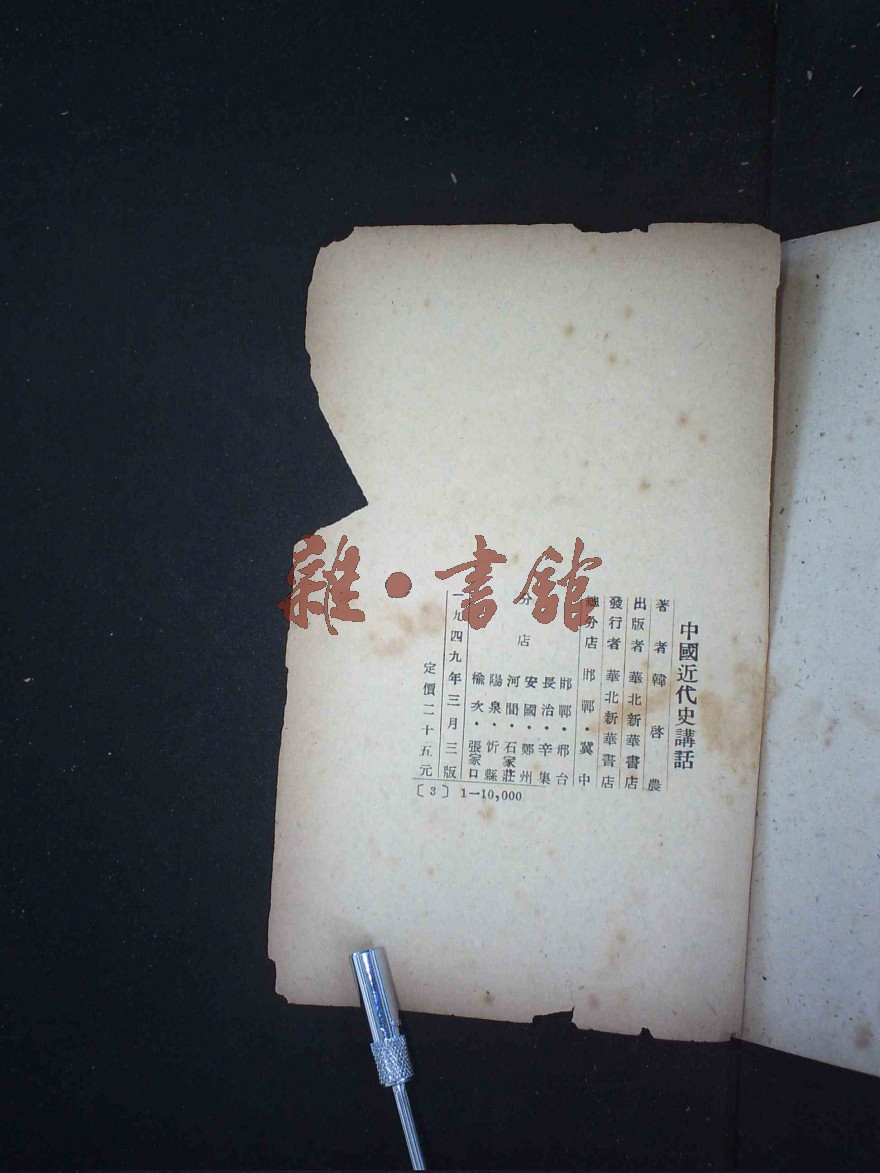 中國近代史講話
著者 韓啓農
出版者 華北新華書店
發行者 華北新華書店
總分店 邯鄲・冀中
分店
邯鄲・邢台
長治・辛集
安國・鄭州
河間・石家莊
陽泉・忻縣
榆次・張家口
一九四九年三月三版
定價二十五元
〔3〕1—10,000
雜・書館